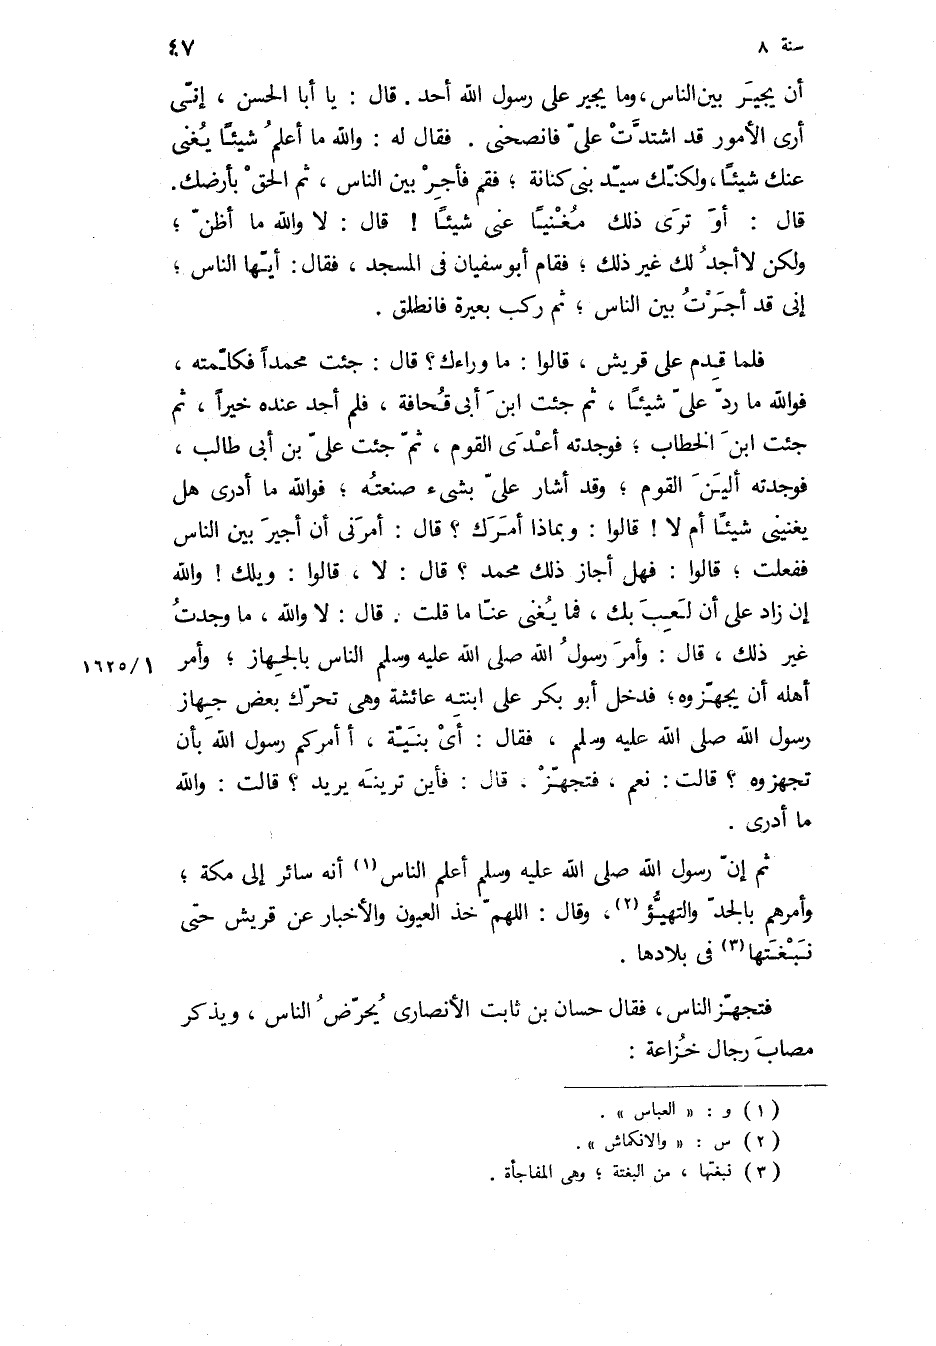 سنة ٨
٤٧
أن يجيَر بين الناس، وما يجير على رسول الله أحد. قال : يا أبا الحسن ، إنّى
أرى الأمور قد اشتدَّتْ علىّ فانصحنى . فقال له : والله ما أعلمُ شيئًا يُغنى
عنك شيئًا، ولكنّك سيّد بنى كنانة ؛ فقم فأجِرْ بين الناس ، ثم الحقْ بأرضك.
قال : أوَ ترَى ذلك مُغْنيًا عنى شيئًا ! قال : لا والله ما أظنّ ؛
ولكن لا أجدُ لك غير ذلك ؛ فقام أبو سفيان فى المسجد ، فقال: أيّها الناس ؛
إنى قد أجَرْتُ بين الناس ؛ ثم ركب بعيرة فانطلق .
فلما قدِم على قريش ، قالوا : ما وراءك؟ قال : جئت محمداً فكلّمته ،
فوالله ما ردّ علىّ شيئًا ، ثم جئت ابنَ أبى قُحافة ، فلم أجد عنده خيراً ، ثم
جئت ابنَ الخطاب ؛ فوجدته أعْدَى القوم ، ثمّ جئت علىّ بن أبى طالب ،
فوجدته أليَنَ القوم ؛ وقد أشار علىّ بشىء صنعتُه ؛ فوالله ما أدرى هل
يغنينى شيئًا أم لا ! قالوا : وبماذا أمَرَك ؟ قال : أمرَنى أن أجيرَ بين الناس
ففعلت ؛ قالوا : فهل أجاز ذلك محمد ؟ قال : لا ، قالوا : ويلك ! والله
إن زاد على أن لَعِبَ بك ، فما يُغنى عنّا ما قلت . قال : لا والله ، ما وجدتُ
غير ذلك ، قال : وأمرَ رسولُ الله صلى الله عليه وسلم الناس بالجِهاز ؛ وأمر
١٦٢٥/١
أهله أن يجهّزوه؛ فدخل أبو بكر على ابنتِه عائشة وهى تحرّك بعض جِهاز
رسول الله صلى الله عليه وسلم ، فقال : أىْ بنَيّة ، أ أمركم رسول الله بأن
تجهزوه ؟ قالت : نعم ، فتجهّزْ . قال : فأين ترينَه يريد ؟ قالت : والله
ما أدرى .
ثم إنّ رسول الله صلى الله عليه وسلم أعلم الناس(١) أنه سائر إلى مكة ؛
وأمرهم بالجدّ والتهيُّؤ(٢)، وقال : اللهمّ خذ العيون والأخبار عن قريش حتى
نَبْغَتها(٣) فى بلادها .
فتجهّز الناس ، فقال حسان بن ثابت الأنصارى يُحرّضُ الناس ، ويذكر
مصابَ رجال خُزاعة :
(١) و : « العباس » .
(٢) س : « والانكماش » .
(٣) نبغتها ، من البغتة ؛ وهى المفاجأة .